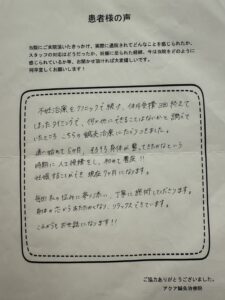 患者様の声
当院にご来院頂いたきっかけ、実際に通院されてどんなことを感じられたか、
スタッフの対応はどうだったか、妊娠に至られた経緯、今は当院をどのように
感じられているか等、お聞かせ頂ければ大変嬉しいです。
何卒宜しくお願いします！
不妊治療をクリニックで続け、体外受精3回終えて
しまったタイミングで、何か他にできることはないかと調べて
いたところ こちらの鍼灸治療にたどりつきました。
通い始めて5か月、そろそろ身体が整ってきたかなという
時期に人工授精をし、初めて着床!!
妊娠することができ 現在7か月になります。
毎回私の悩みに寄り添い、丁寧に施術してくださります。
身体の芯からあたたかくなり、リラックスできています。
これからもお世話になります!!
ご協力ありがとうございました。
アクア鍼灸治療院